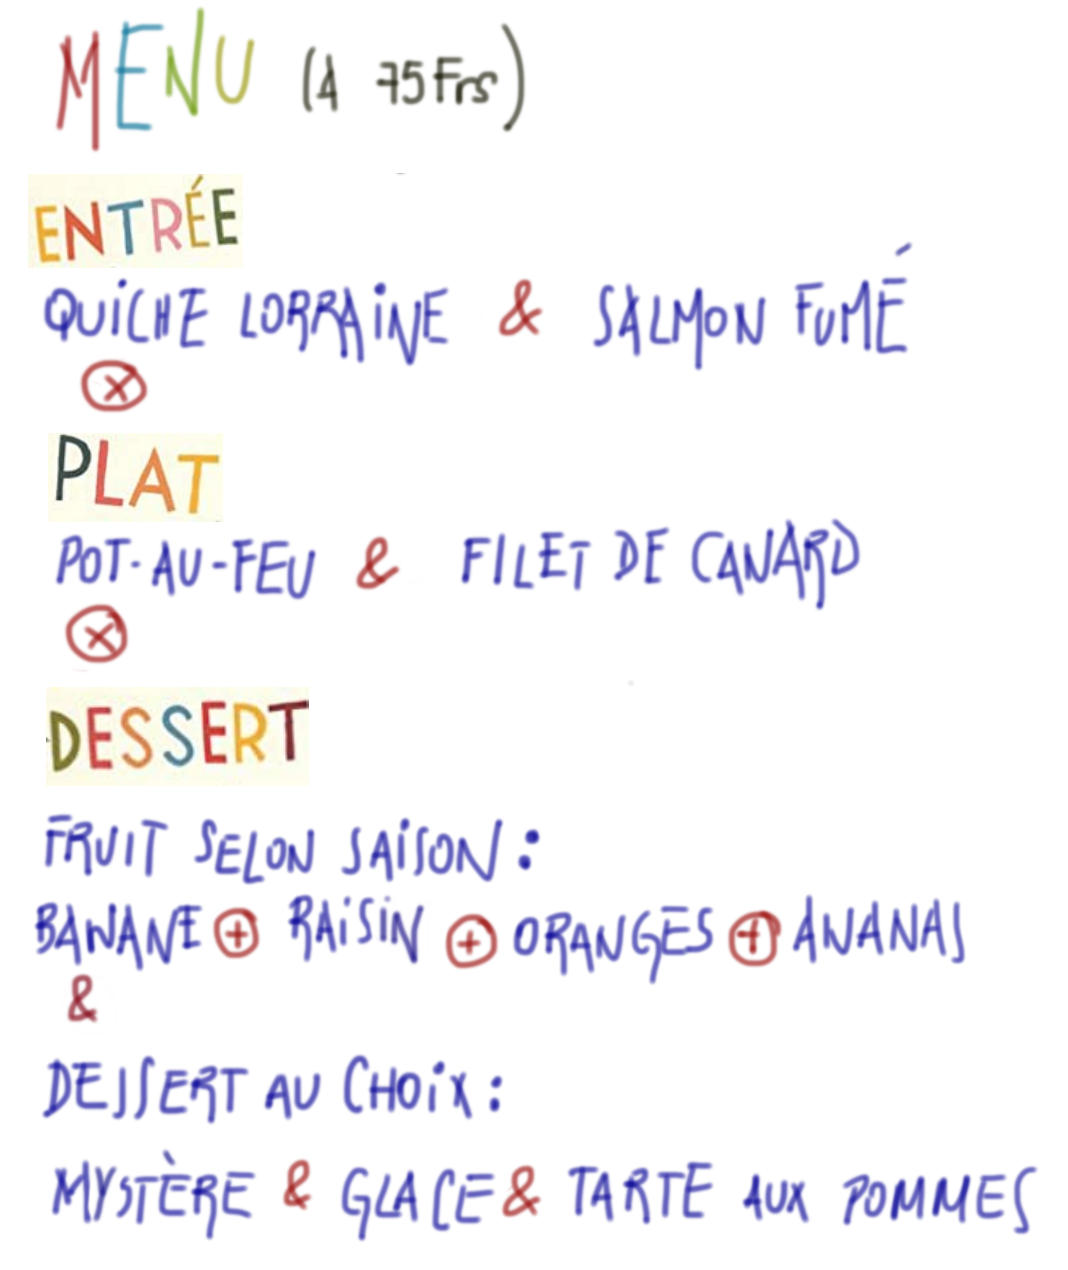 MENU (A 75 Frs)
ENTRÉE
QUICHE LORRAINE & SALMON FUMÉ
⊗
PLAT
POT-AU-FEU & FILET DE CANARD
⊗
DESSERT
FRUIT SELON SAISON :
BANANE ⊕ RAISIN ⊕ ORANGES ⊕ ANANAS
&
DESSERT AU CHOIX :
MYSTÈRE & GLACE & TARTE AUX POMMES